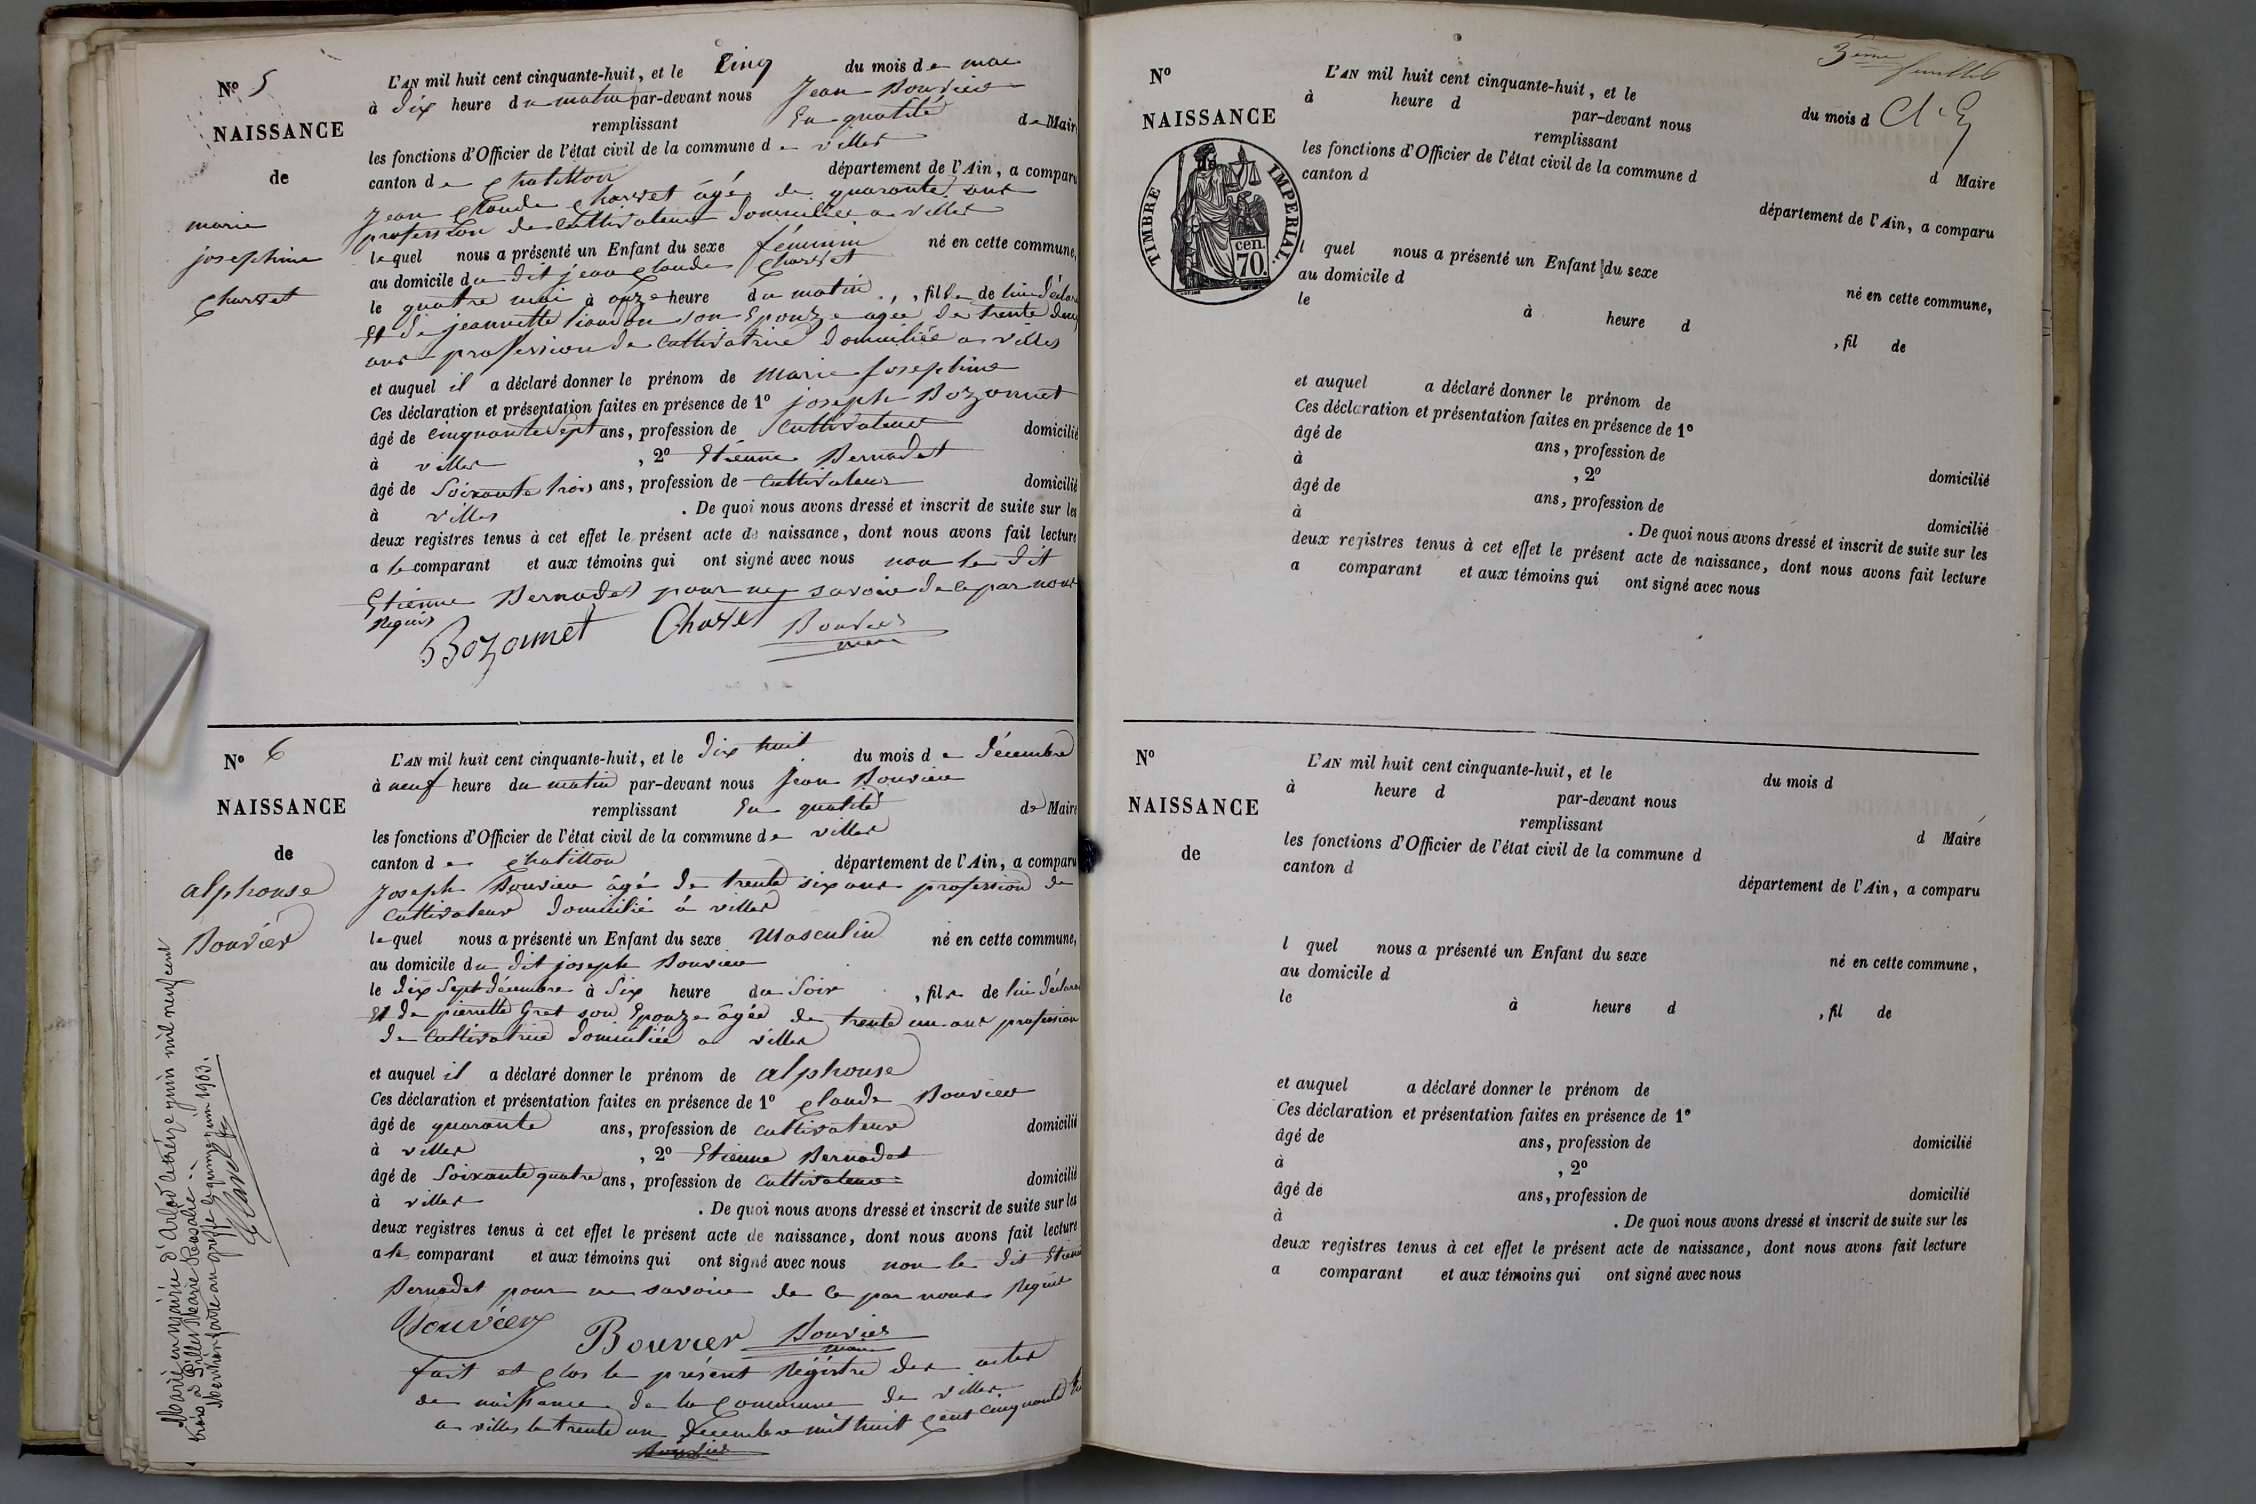 Nº 5
NAISSANCE
de
marie
josephine
Charvet
L'AN mil huit cent cinquante-huit, et le Cinq du mois de mai
à Dix heure du matin par-devant nous Jean Bouvier
remplissant En qualité de Maire
les fonctions d'Officier de l'état civil de la commune de villes
canton de Chatillon département de l'Ain, a comparu
Jean Claude Charvet âgé de quarante ans
profession de Cultivateur domicilié a villes
lequel nous a présenté un Enfant du sexe féminin né en cette commune,
au domicile du dit jean Claude Charvet
le quatre mai à onze heure du matin, fille de lui déclarant
Et de jeannette son Epouze agée de trente deux
ans profession de Cultivatrice domiciliée a villes
et auquel il a déclaré donner le prénom de Marie Josephine
Ces déclaration et présentation faites en présence de 1º joseph Bozonnet
âgé de cinquante Sept ans, profession de Cultivateur domicilié
à villes, 2º Etienne Bernadet
âgé de Soixante trois ans, profession de Cultivateur domicilié
à villes. De quoi nous avons dressé et inscrit de suite sur les
deux registres tenus à cet effet le présent acte de naissance, dont nous avons fait lecture
a le comparant et aux témoins qui ont signé avec nous non le dit
Etienne Bernadet pour ne savoir de ce par nous
Requis
Bozonnet Charvet Bouvier
maire
Nº 6
NAISSANCE
de
alphonse
Bouvier
L'AN mil huit cent cinquante-huit, et le Dix huit du mois de Décembre
à neuf heure du matin par-devant nous Jean Bouvier
remplissant En qualité de Maire
les fonctions d'Officier de l'état civil de la commune de villes
canton de Chatillon département de l'Ain, a comparu
Joseph Bouvier âgé de trente six ans profession de
Cultivateur domicilié à villes
lequel nous a présenté un Enfant du sexe Masculin né en cette commune,
au domicile du dit joseph Bouvier
le Dix Sept Décembre à Six heure du Soir, fils de lui déclarant
Et de pierrette Gret son Epouze âgée de trente un ans profession
de Cultivatrice domiciliée a villes
et auquel il a déclaré donner le prénom de alphonse
Ces déclaration et présentation faites en présence de 1º Claude Bouvier
âgé de quarante ans, profession de Cultivateur domicilié
à villes, 2º Etienne Bernadet
âgé de Soixante quatre ans, profession de Cultivateur domicilié
à villes. De quoi nous avons dressé et inscrit de suite sur les
deux registres tenus à cet effet le présent acte de naissance, dont nous avons fait lecture
a le comparant et aux témoins qui ont signé avec nous non le dit Etienne
Bernadet pour ne savoir de ce par nous Requis
Bouvier Bouvier Bouvier
maire
fait et clos le présent Régistre des actes
de naissance de la Commune de villes
a villes le trente un Decembre mil huit Cent Cinquante
Bouvier
Marié en mairie d'Arlod le treize juin mil neuf cent
trois à Pillet Marie Rosalie.
Mention faite au greffe le quinze juin 1903.
3ème feuillet
Nº
NAISSANCE
TIMBRE IMPERIAL.
70. cen.
L'AN mil huit cent cinquante-huit, et le du mois d
à heure d par-devant nous
remplissant d Maire
les fonctions d'Officier de l'état civil de la commune d
canton d département de l'Ain, a comparu
l quel nous a présenté un Enfant du sexe né en cette commune,
au domicile d
le à heure d , fil de
et auquel a déclaré donner le prénom de
Ces déclaration et présentation faites en présence de 1º
âgé de ans, profession de domicilié
à , 2º
âgé de ans, profession de domicilié
à . De quoi nous avons dressé et inscrit de suite sur les
deux registres tenus à cet effet le présent acte de naissance, dont nous avons fait lecture
a comparant et aux témoins qui ont signé avec nous
Nº
NAISSANCE
de
L'AN mil huit cent cinquante-huit, et le du mois d
à heure d par-devant nous
remplissant d Maire
les fonctions d'Officier de l'état civil de la commune d
canton d département de l'Ain, a comparu
l quel nous a présenté un Enfant du sexe né en cette commune,
au domicile d
le à heure d , fil de
et auquel a déclaré donner le prénom de
Ces déclaration et présentation faites en présence de 1º
âgé de ans, profession de domicilié
à , 2º
âgé de ans, profession de domicilié
à . De quoi nous avons dressé et inscrit de suite sur les
deux registres tenus à cet effet le présent acte de naissance, dont nous avons fait lecture
a comparant et aux témoins qui ont signé avec nous